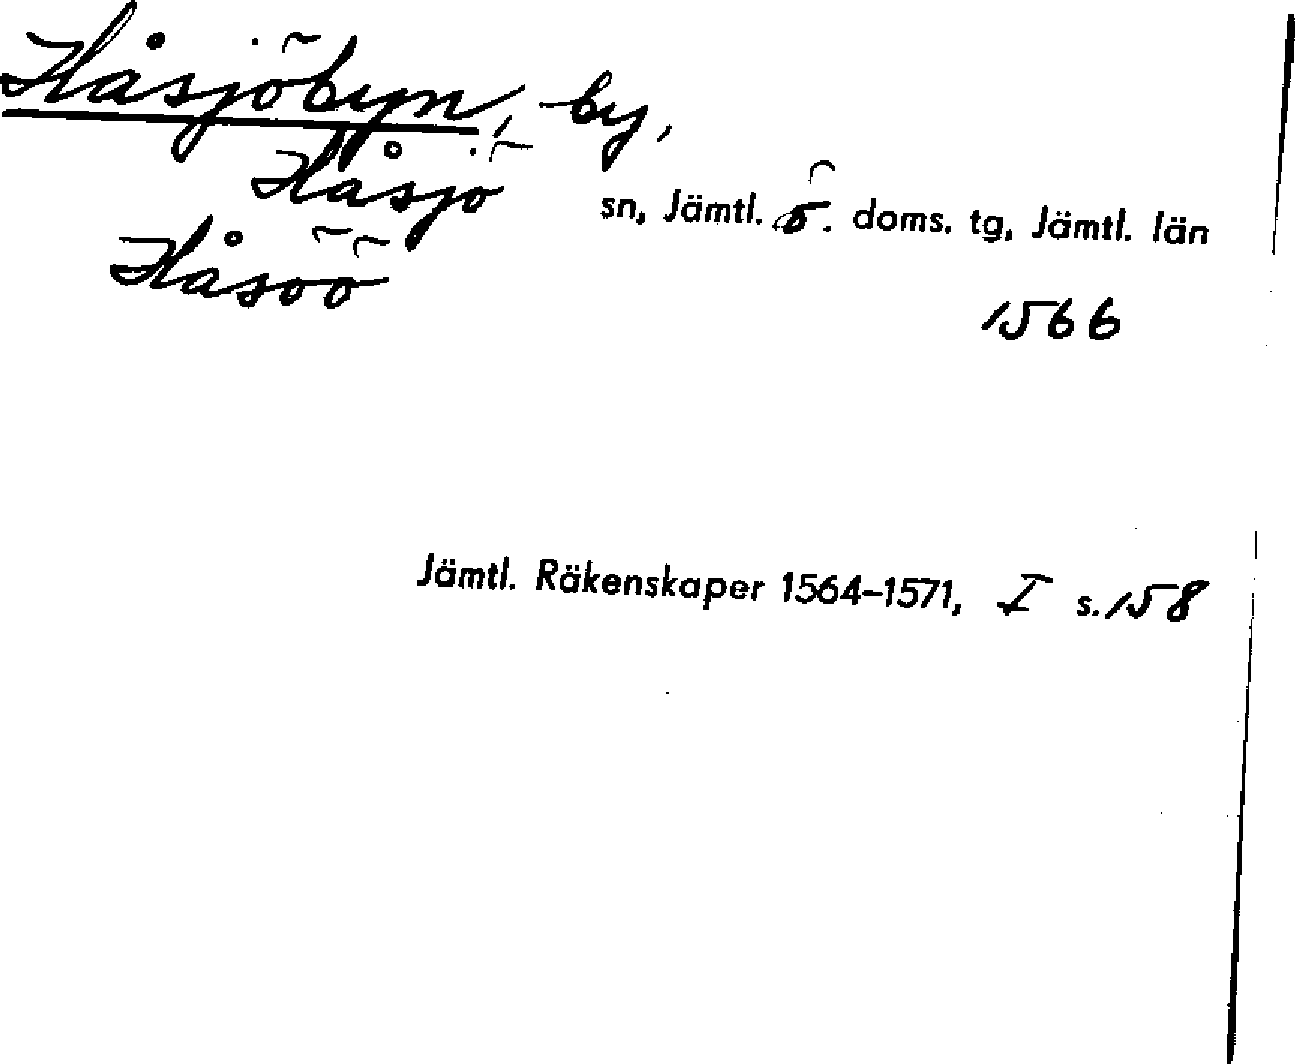 Håsjöbyn, by,
Håsjö sn, Jämtl. ö. doms. tg, Jämtl. län
Håsöö
1566
Jämtl. Räkenskaper 1564-1571, I s. 158